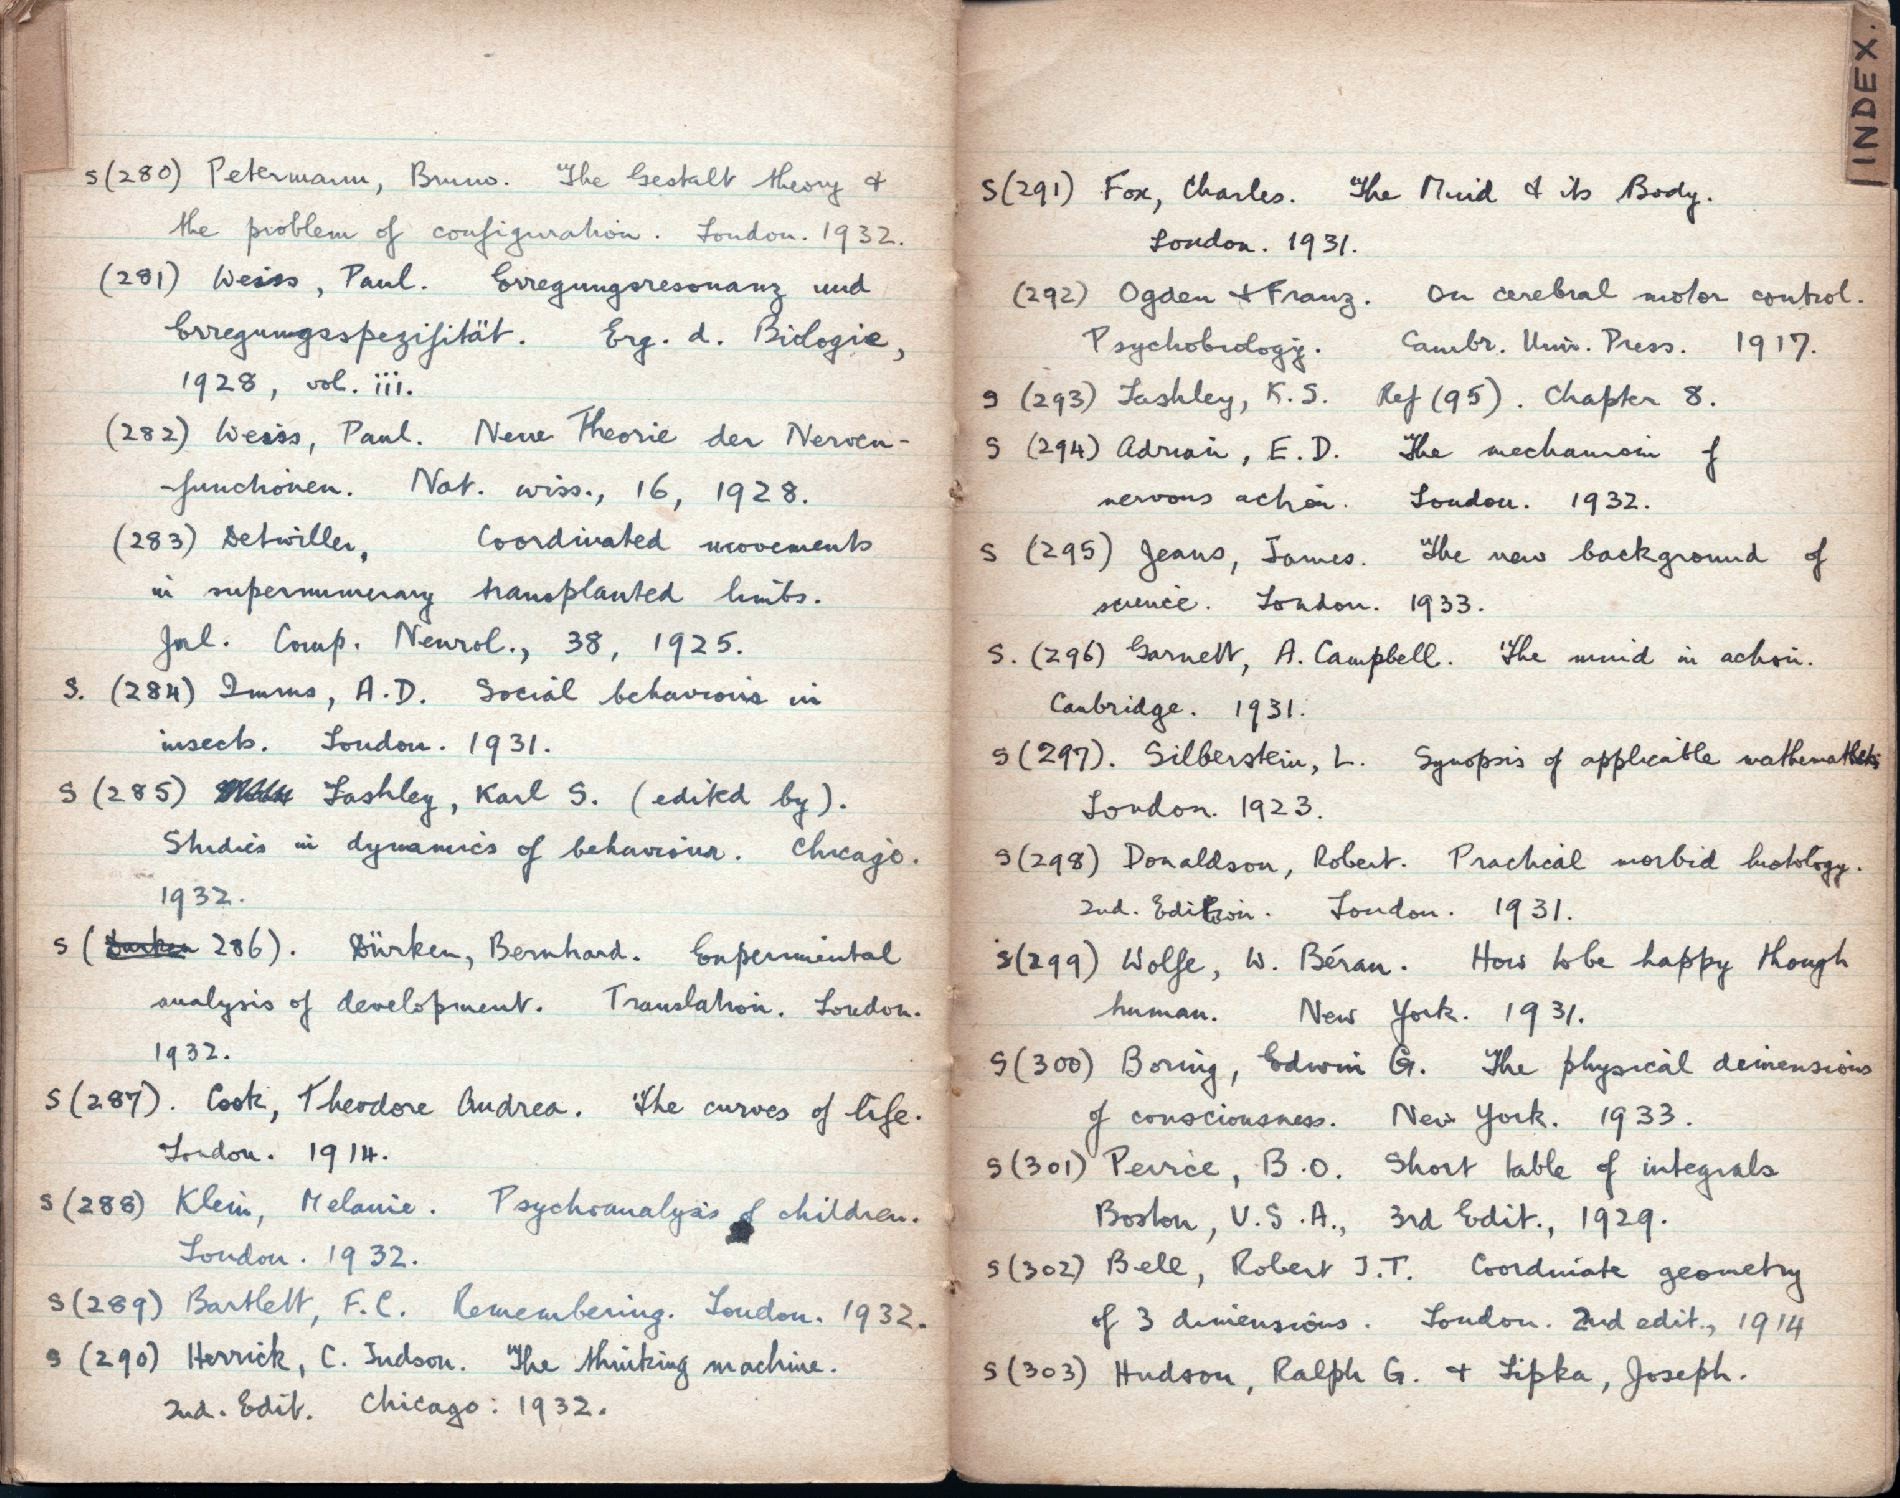 S (280) Petermann, Bruno. The Gestalt theory &
the problem of configuration. London. 1932.
(281) Weiss, Paul. Erregungsresonanz und
Erregungsspezifität. Erg. d. Biologie,
1928, vol. iii.
(282) Weiss, Paul. Neue Theorie der Nerven-
-functionen. Nat. wiss., 16, 1928.
(283) Detwiller, Coordinated movements
in supernumerary transplanted limbs.
Jnl. Comp. Neurol., 38, 1925.
S. (284) Imms, A.D. Social behaviour in
insects. London. 1931.
S (285) Lashley, Karl S. (edited by).
Studies in dynamics of behaviour. Chicago.
1932.
S (Durken 286). Dürken, Bernhard. Experimental
analysis of development. Translation. London.
1932.
S (287). Cook, Theodore Andrea. The curves of life.
London. 1914.
S (288) Klein, Melanie. Psychoanalysis of children.
London. 1932.
S (289) Bartlett, F.C. Remembering. London. 1932.
S (290) Herrick, C. Judson. The thinking machine.
2nd. Edit. Chicago: 1932.
INDEX.
S (291) Fox, Charles. The Mind & its Body.
London. 1931.
(292) Ogden & Franz. On cerebral motor control.
Psychobiology. Cambr. Univ. Press. 1917.
S (293) Lashley, K.S. Ref (95). Chapter 8.
S (294) Adrian, E.D. The mechanism of
nervous action. London. 1932.
S (295) Jeans, James. The new background of
science. London. 1933.
S. (296) Garnett, A. Campbell. The mind in action.
Cambridge. 1931.
S (297). Silberstein, L. Synopsis of applicable mathematics
London. 1923.
S (298) Donaldson, Robert. Practical morbid histology.
2nd. Edition. London. 1931.
S (299) Wolfe, W. Béran. How to be happy though
human. New York. 1931.
S (300) Boring, Edwin G. The physical deimensions
of consciousness. New York. 1933.
S (301) Peirce, B.O. Short table of integrals
Boston, U.S.A., 3rd Edit., 1929.
S (302) Bell, Robert J.T. Coordinate geometry
of 3 dimensions. London. 2nd edit., 1914
S (303) Hudson, Ralph G. & Lipka, Joseph.